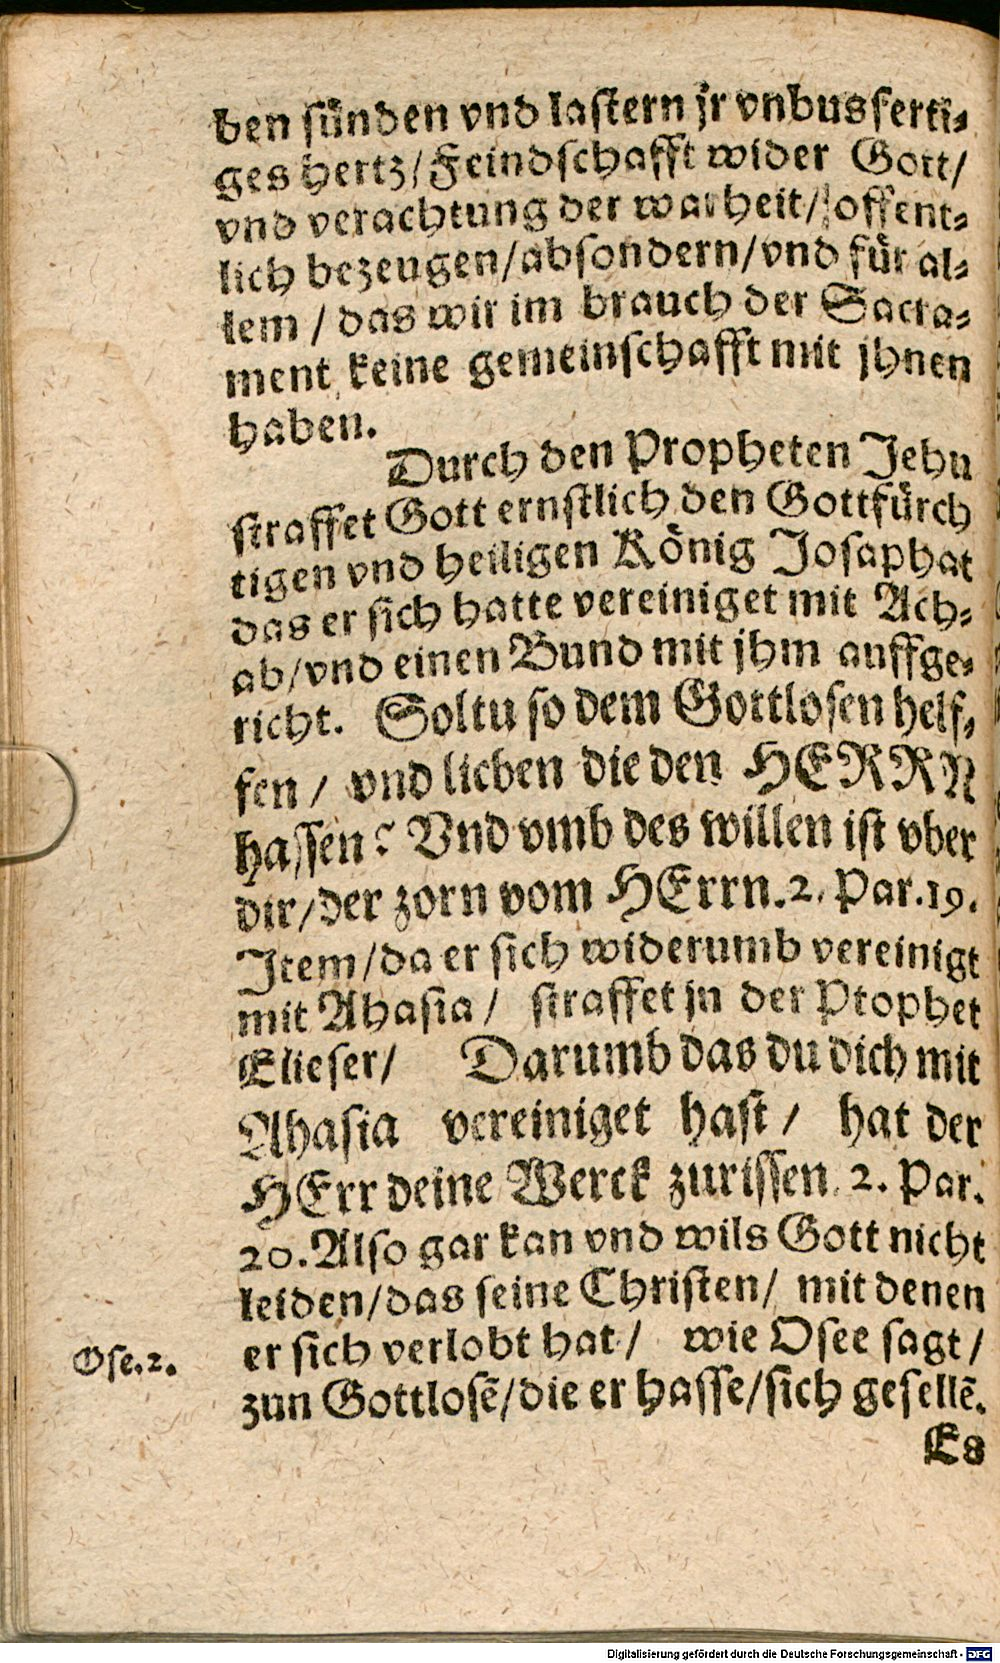 ben sünden vnd lastern jr vnbusserti⸗
ges hertz/Feindschafft wider Gott/
vnd verachtung der warheit/offent⸗
lich bezeugen/absondern/vnd für al⸗
lem / das wir im brauch der Sacra⸗
ment keine gemeinschafft mit jhnen
haben.
Durch den Propheten Jehu
straffet Gott ernstlich den Gottfürch
tigen vnd heiligen König Josaphat
das er sich hatte vereiniget mit Ach⸗
ab/vnd einen Bund mit jhm auffge⸗
richt. Soltu so dem Gottlosen helf⸗
fen / vnd lieben die den HERRN
hassen? Vnd vmb des willen ist vber
dir/der zorn vom HErrn.2. Par.19.
Item/da er sich widerumb vereinigt
mit Ahasia / straffet jn der Ptophet
Elieser/ Darumb das du dich mit
Ahasia vereiniget hast / hat der
HErr deine Werck zurissen. 2. Par.
20. Also gar kan vnd wils Gott nicht
leiden/das seine Christen/ mit denen
er sich verlobt hat / wie Osee sagt /
Ose.2.
zun Gottlosẽ/die er hasse/sich gesellẽ.
Es
Digitalisierung gefördert durch die Deutsche Forschungsgemeinschaft - DFG